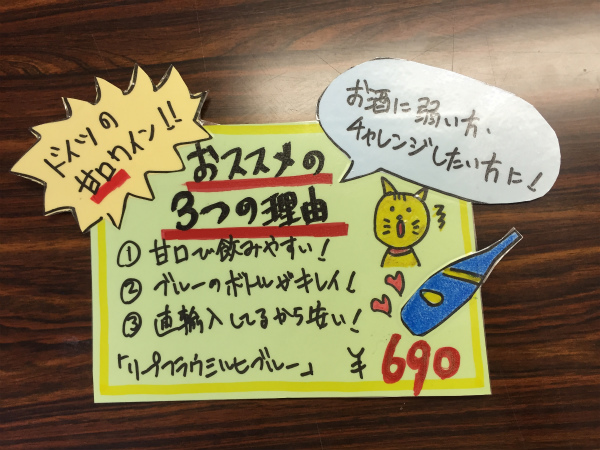 ドイツの
甘口ワイン!!
お酒に弱い方、
チャレンジしたい方に!
おススメの
3つの理由
① 甘口で飲みやすい!
② ブルーのボトルがキレイ!
③ 直輸入してるから安い!
「リープフラウミルヒブルー」 ¥690